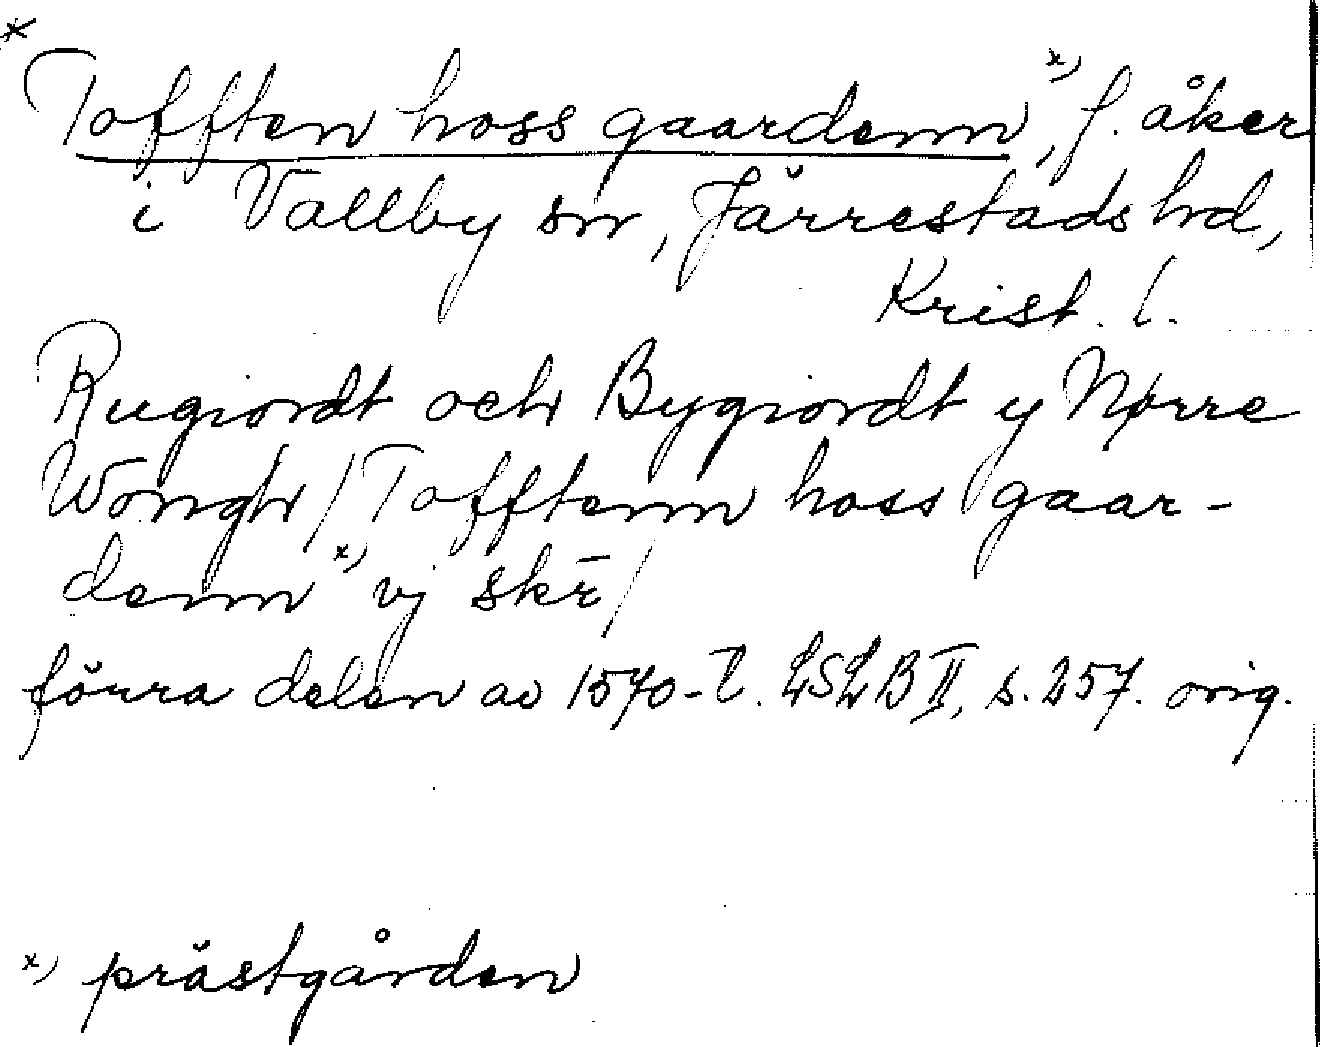 *
Tofften hoss gaardenn x), f. åker
i Vallby sn, Järrestads hd,
Krist. l.
Rugiordt och Bygiordt y Nørre
Wongh / Tofftenn hoss gaar-
denn x) vj skr̄ /
förra delen av 1570-t. LSLB II, s. 257. orig.
x) prästgården